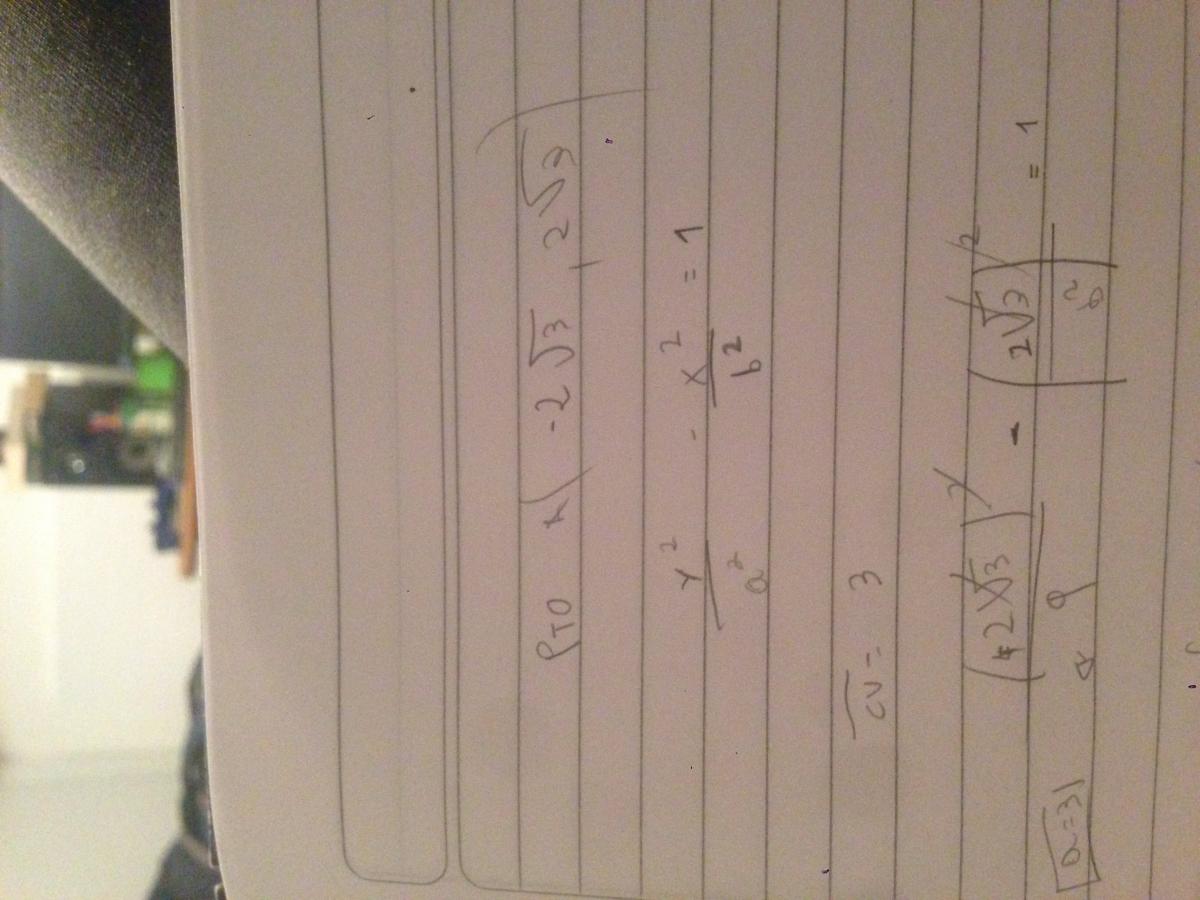 PTO A(-2√3, 2√3)
y²/a² - x²/b² = 1
CV = 3
(+2√3)²/9 - (2√3)²/b² = 1
a=3